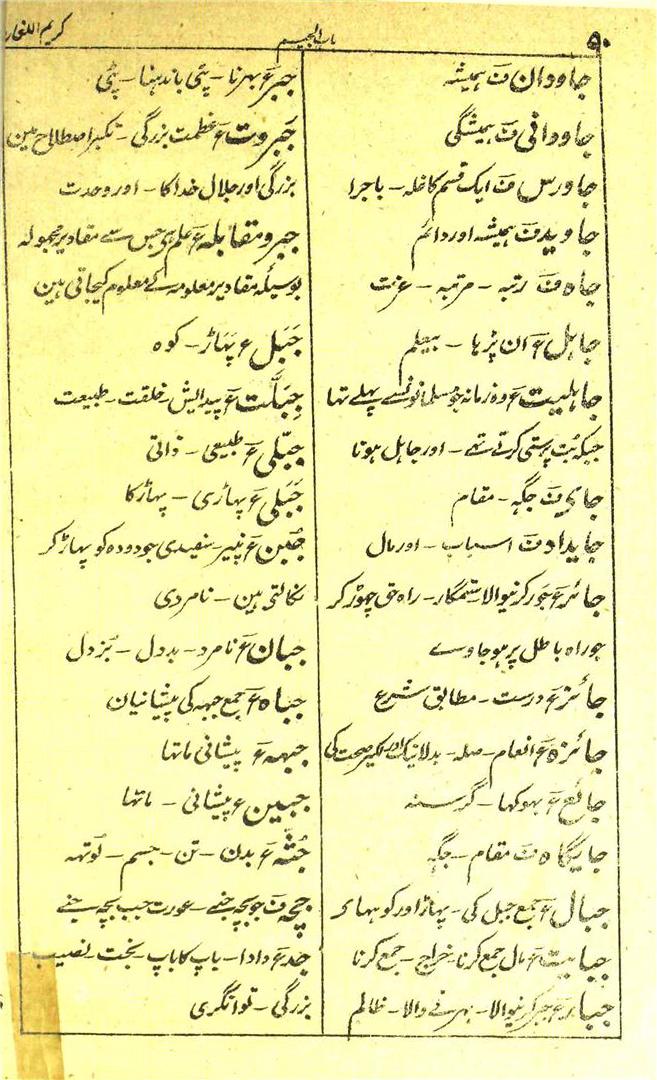 ۵۰
باب الجیم
کریم اللغات
جاودان ف ہمیشہ
جاودانی ف ہمیشگی
جاورس ف ایک قسم کا غلہ - باجرا
جاوید ف ہمیشہ اور دائم
جاہ ف رتبہ - مرتبہ - عزت
جاہل ع ان پڑہا - بیعلم
جاہلیت ع وہ زمانہ جو مسلمانونسے پہلے تہا
جبکہ بُت پرستی کرتے تہے - اور جاہل ہونا
جای ف جگہ - مقام
جایداد ف اسباب - اور مال
جائر ع جور کرنیوالا ستمگار - راہ حق چہوڑ کر
جو راہ باطل پر ہو جاوے
جائز ع درست - مطابق شرع
جائزہ ع انعام - صلہ - بدلا نیک کی
جائع ع بہوکہا - گرسنہ
جایگاہ ف مقام - جگہ
جبال ع جمع جبل کی - پہاڑ اور کوہہای
جبایت ع مال جمع کرنا - خراج - جمع کرنا
جبار ع جبر کرنیوالا - بہرنے والا - ظالم
جبر ع بہرنا - پٹی باندہنا - پٹی
جبروت ع عظمت بزرگی - تکبر اصطلاح مین
بزرگی اور جلال خدا کا - اور وحدت
جبر و مقابلہ ع علم ہی جس سے مقادیر مجہولہ
بوسیلہ مقادیر معلومہ کے معلوم کیجاتی ہین
جَبَل ع پہاڑ - کوہ
جِبِلَّت ع پیدایش - خلقت - طبیعت
جبلی ع طبیعی - ذاتی
جَبَلی ع پہاڑی - پہاڑ کا
جُبن ع پنیر - سفیدی جو دودہ کو پہاڑ کر
نکالتی ہین - نامردی
جبان ع نامرد - بددل - بزدل
جباہ ع جمع جبہہ کی پیشانیان
جبہہ ع پیشانی ماتہا
جبین ع پیشانی - ماتہا
جُثّہ ع بدن - تن - جسم - لوتہہ
جچہ ف جو بچہ جنے - عورت جب بچہ جنے
جد ع دادا - باپ کا باپ - بخت - نصیب
بزرگی - توانگری